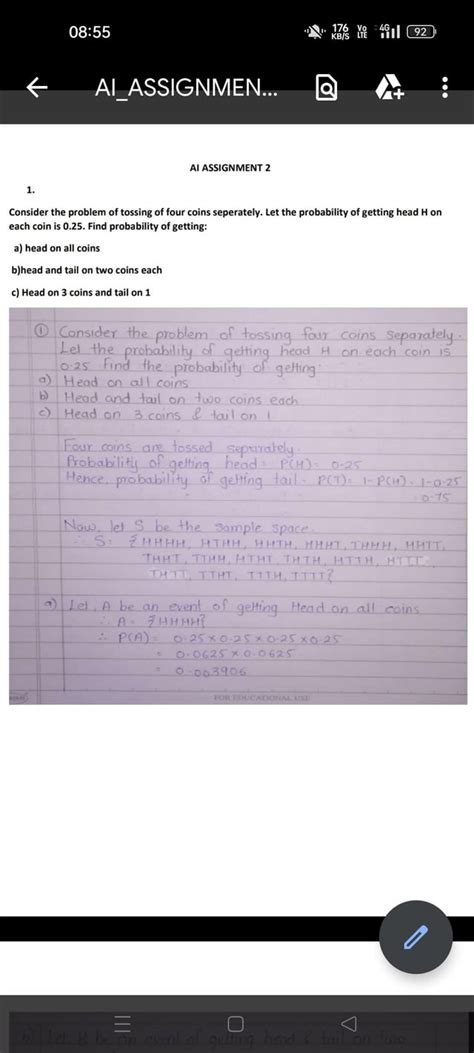 08:55 176 KB/S Vo LTE 4G 92
AI_ASSIGNMEN...
AI ASSIGNMENT 2
1.
Consider the problem of tossing of four coins seperately. Let the probability of getting head H on
each coin is 0.25. Find probability of getting:
a) head on all coins
b)head and tail on two coins each
c) Head on 3 coins and tail on 1
① Consider the problem of tossing four coins separately.
Let the probability of getting head H on each coin is
0.25 Find the probability of getting:
a) Head on all coins
b) Head and tail on two coins each
c) Head on 3 coins & tail on 1
Four coins are tossed separately.
Probability of getting head = P(H) = 0.25
Hence, probability of getting tail = P(T) = 1-P(H) = 1-0.25
= 0.75
Now, let S be the sample space.
∴ S = {HHHH, HTHH, HHTH, HHHT, THHH, HHTT,
THHT, TTHH, HTHT, THTH, HTTH, HTTT
THTT, TTHT, TTTH, TTTT}
a) Let, A be an event of getting Head on all coins
∴ A = {HHHH}
∴ P(A) = 0.25 x 0.25 x 0.25 x 0.25
= 0.0625 x 0.0625
= 0.003906
FOR EDUCATIONAL USE
b) Let, B be an event of getting head & tail on two